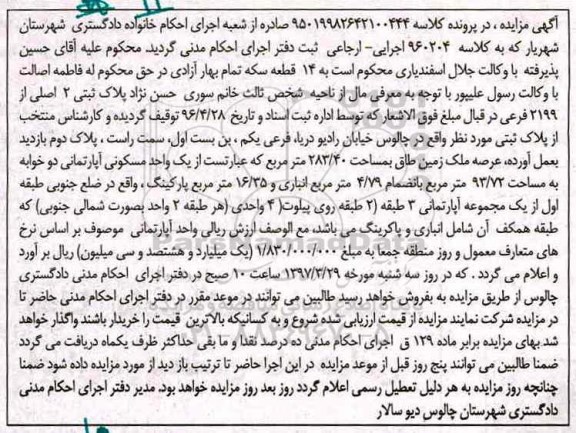 آگهی مزایده ، در پرونده کلاسه ۹۵۰۱۹۹۸۲۶۴۲۱۰۰۴۴۴ صادره از شعبه اجرای احکام خانواده دادگستری شهرستان
شهریار که به کلاسه ۹۶۰۲۰۴ اجرایی- ارجاعی ثبت دفتر اجرای احکام مدنی گردید. محکوم علیه آقای حسین
پذیرفته با وکالت جلال اسفندیاری محکوم است به ۱۴ قطعه سکه تمام بهار آزادی در حق محکوم له فاطمه اصالت
با وکالت رسول علیپور با توجه به معرفی مال از ناحیه شخص ثالث خانم سوری حسن نژاد پلاک ثبتی ۲ اصلی از
۲۱۹۹ فرعی در قبال مبلغ فوق الاشعار که توسط اداره ثبت اسناد و تاریخ ۹۶/۴/۲۸ توقیف گردیده و کارشناس منتخب
از پلاک ثبتی مورد نظر واقع در چالوس خیابان رادیو دریا، فرعی یکم ، بن بست اول، سمت راست ، پلاک دوم بازدید
بعمل آورده، عرصه ملک زمین طاق بمساحت ۲۸۳/۴۰ متر مربع که عبارتست از یک واحد مسکونی آپارتمانی دو خوابه
به مساحت ۹۳/۷۲ متر مربع بانضمام ۴/۷۹ متر مربع انباری و ۱۶/۳۵ متر مربع پارکینگ ، واقع در ضلع جنوبی طبقه
اول از یک مجموعه آپارتمانی ۳ طبقه (۲ طبقه روی پیلوت( ۴ واحدی (هر طبقه ۲ واحد بصورت شمالی جنوبی) که
طبقه همکف آن شامل انباری و پاکرینگ می باشد، مع الوصف ارزش ریالی واحد آپارتمانی موصوف بر اساس نرخ
های متعارف معمول و روز منطقه جمعا به مبلغ ۱/۸۳۰/۰۰۰/۰۰۰ (یک میلیارد و هشتصد و سی میلیون) ریال بر آورد
و اعلام می گردد . که در روز سه شنبه مورخه ۱۳۹۷/۳/۲۹ ساعت ۱۰ صبح در دفتر اجرای احکام مدنی دادگستری
چالوس از طریق مزایده به بفروش خواهد رسید طالبین می توانند در موعد مقرر در دفتر اجرای احکام مدنی حاضر تا
در مزایده شرکت نمایند مزایده از قیمت ارزیابی شده شروع و به کسانیکه بالاترین قیمت را خریدار باشند واگذار خواهد
شد. بهای مزایده برابر ماده ۱۲۹ ق اجرای احکام مدنی ده درصد نقدا و ما بقی حداکثر ظرف یکماه دریافت می گردد
ضمنا طالبین می توانند پنج روز قبل از موعد مزایده در این اجرا حاضر تا ترتیب باز دید از مورد مزایده داده شود ضمنا
چنانچه روز مزایده به هر دلیل تعطیل رسمی اعلام گردد روز بعد روز مزایده خواهد بود. مدیر دفتر اجرای احکام مدنی
دادگستری شهرستان چالوس دیو سالار
ParsNamadData